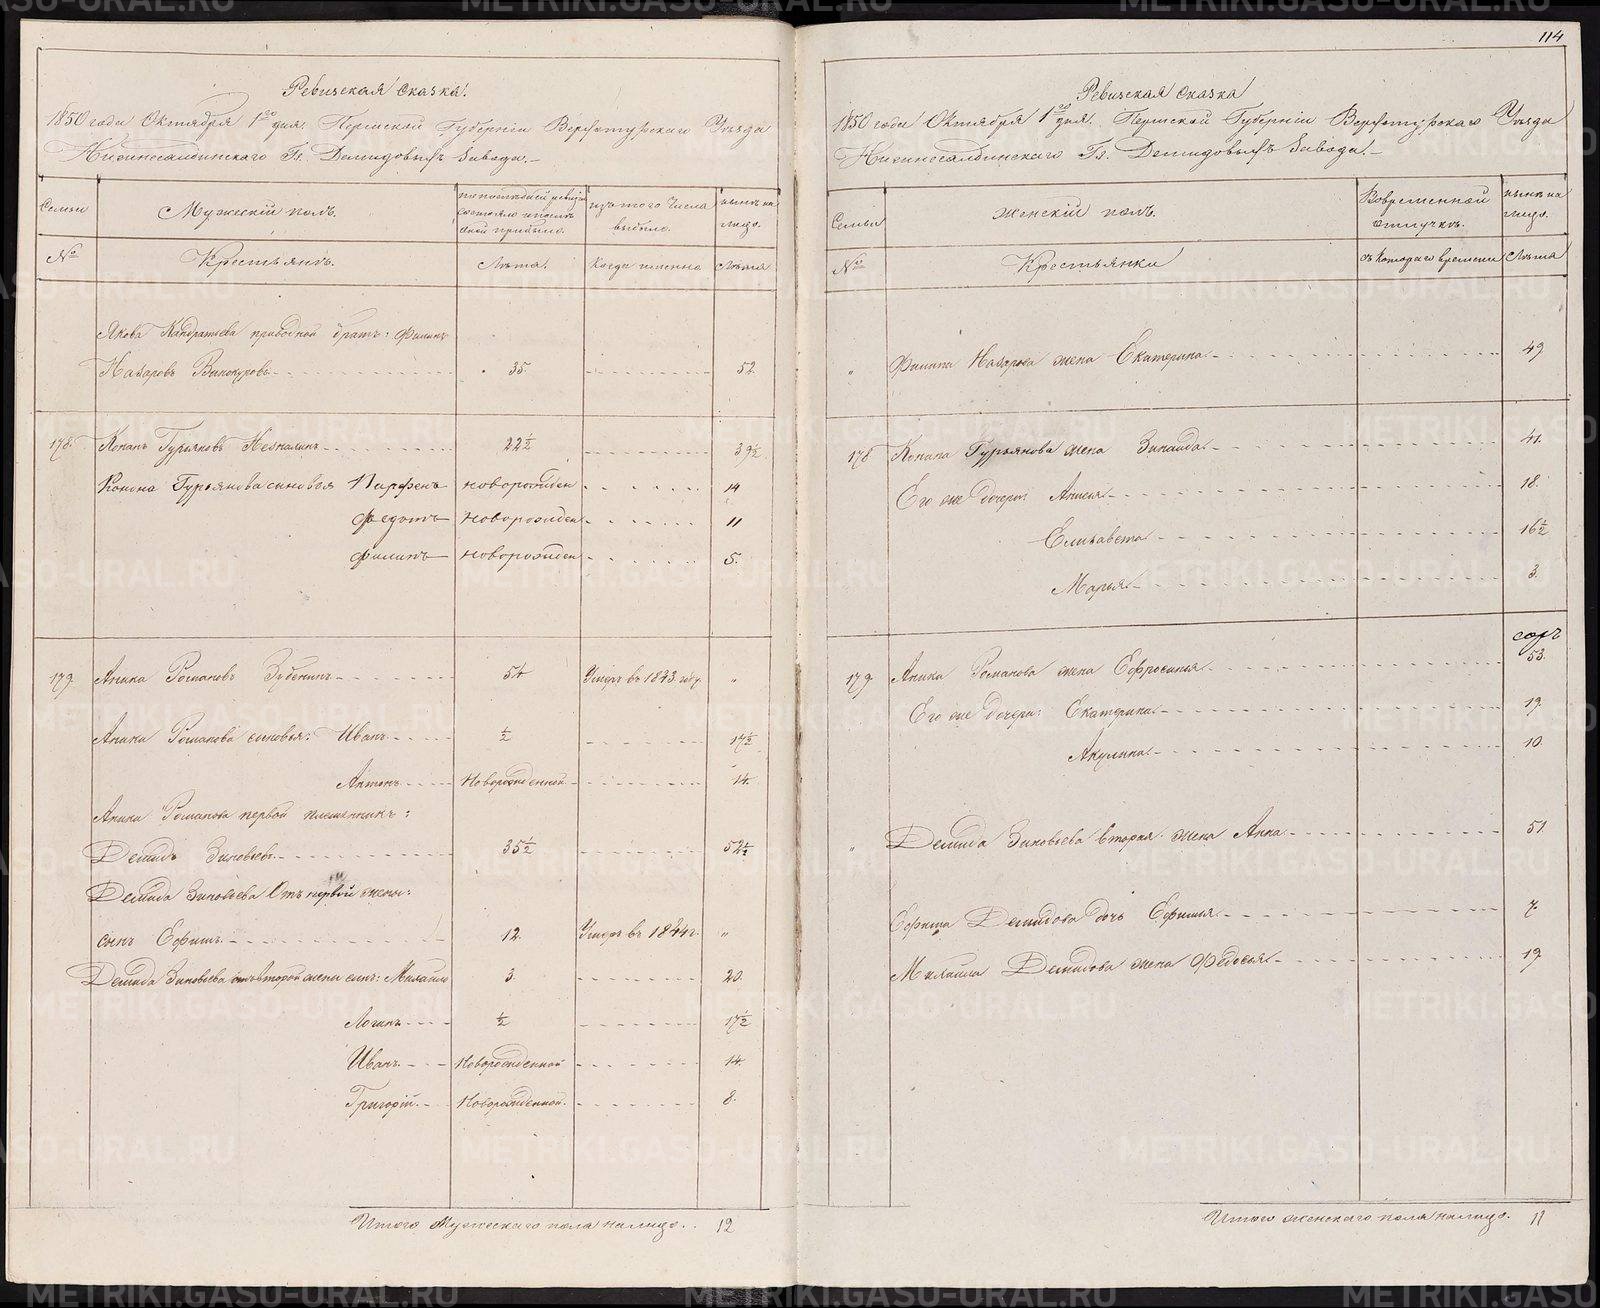 114
Ревизская сказка.
1850 года Октября 1го дня. Пермской Губерніи Верхотурскаго Уѣзда
Нижнесалдинскаго Гг. Демидовыхъ Завода.
Семьи
Мужескій полъ.
по послѣдней ревизіи состояло и послѣ оной прибыло.
изъ того числа выбыло.
нынѣ на лицо.
№
Крестьянъ.
Лѣта.
Когда именно
Лѣта
Якова Кандратьева приводной братъ: Филипъ
Назаровъ Винокуровъ 35. 52
178. Конанъ Гурьяновъ 22½ 39½
Конона Гурьянова сыновья Парфенъ новорожден 14
Федотъ новорожден 11
Филипъ новорожден 5.
179 Аника Романовъ Зубенинъ 54 Умеръ въ 1843 году "
Аники Романова сыновья: Иванъ ½ 17½
Антонъ Новорожденной 14.
Аники Романова первой племянникъ:
Демидъ Зиновьевъ 35½ 52½
Демида Зиновьева Отъ первой жены:
сынъ Ефимъ. 12. Умеръ въ 1844 г. "
Демида Зиновьева отъ второй жены сынъ: Михайло 3 20
Логинъ ½ 17½
Иванъ. Новорожденной 14
Григорій. Новорожденной. 8.
Итого Мужескаго пола налицо. 12
Ревизская сказка
1850 года Октября 1го дня. Пермской Губерніи Верхотурскаго Уѣзда
Нижнесалдинскаго Гг. Демидовыхъ Завода.
Семьи
Женскій полъ.
Во временной отлучкѣ.
нынѣ на лицо.
№
Крестьянки
съ котораго времени
Лѣта
" Филипа Назарова жена Екатерина 49
178 Конана Гурьянова жена Зинаида. 41.
Его же дочери: Анисья 18.
Елизавета 16½
Марья 3.
179 Аника Романова жена Ефросинья 53.
Его же дочери: Екатерина 19
Акулина. 10.
" Демида Зиновьева вторая жена Анна 51
Ефима Демидова дочь Ефимья 7
Михаила Демидова жена Федосья 19
Итого женскаго пола налицо. 11